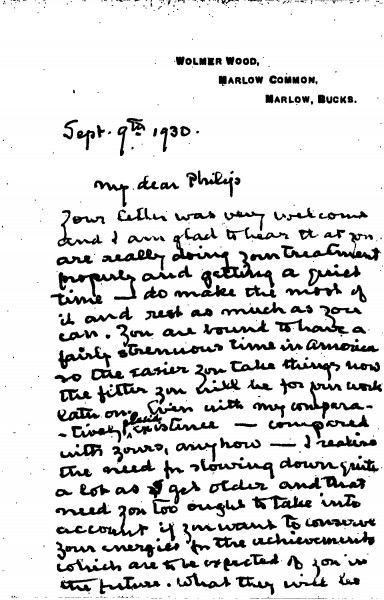 WOLMER WOOD,
MARLOW COMMON,
MARLOW, BUCKS.
Sept. 9th 1930.
My dear Philips
Your letter was very welcome
and I am glad to hear tt at you
are really doing your treatment
properly and getting a quiet
time — do make the most of
it and rest as much as you
can. You are bound to have a
fairly strenuous time in America
so the easier you take things now
the fitter you will be for your work
later on. Even with my compara-
-tively placid existence — compared
with yours, anyhow — I realise
the need for slowing down quite
a lot as I get older and that
need you too ought to take into
account if you want to conserve
your energies for the achievements
which are to be expected of you in
the future. What they will be